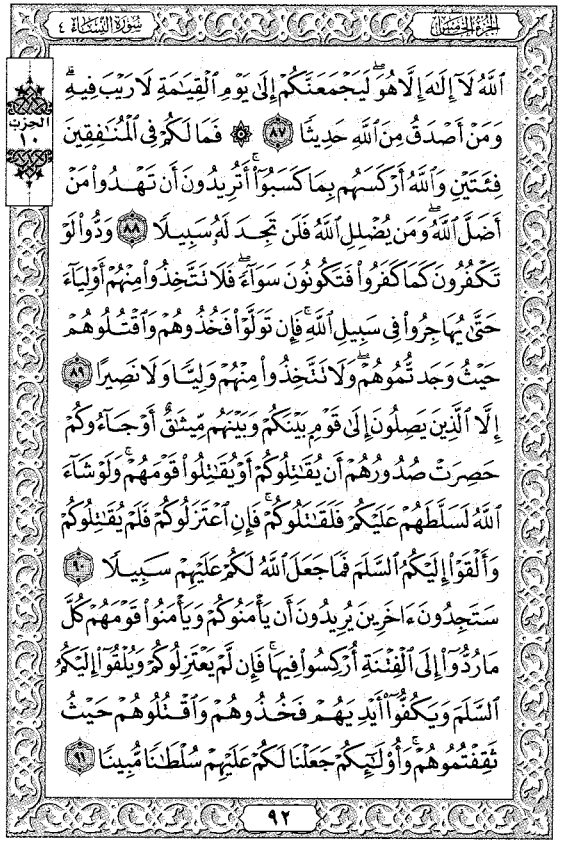 الجزء الخامس
سورة النساء ٤
الحزب
١٠
ٱللَّهُ لَآ إِلَٰهَ إِلَّا هُوَۚ لَيَجْمَعَنَّكُمْ إِلَىٰ يَوْمِ ٱلْقِيَٰمَةِ لَا رَيْبَ فِيهِۗ
وَمَنْ أَصْدَقُ مِنَ ٱللَّهِ حَدِيثًا ٨٧ ۞ فَمَا لَكُمْ فِى ٱلْمُنَٰفِقِينَ
فِئَتَيْنِ وَٱللَّهُ أَرْكَسَهُم بِمَا كَسَبُوٓا۟ۚ أَتُرِيدُونَ أَن تَهْدُوا۟ مَنْ
أَضَلَّ ٱللَّهُۖ وَمَن يُضْلِلِ ٱللَّهُ فَلَن تَجِدَ لَهُۥ سَبِيلًا ٨٨ وَدُّوا۟ لَوْ
تَكْفُرُونَ كَمَا كَفَرُوا۟ فَتَكُونُونَ سَوَآءًۖ فَلَا تَتَّخِذُوا۟ مِنْهُمْ أَوْلِيَآءَ
حَتَّىٰ يُهَاجِرُوا۟ فِى سَبِيلِ ٱللَّهِۚ فَإِن تَوَلَّوْا۟ فَخُذُوهُمْ وَٱقْتُلُوهُمْ
حَيْثُ وَجَدتُّمُوهُمْۖ وَلَا تَتَّخِذُوا۟ مِنْهُمْ وَلِيًّا وَلَا نَصِيرًا ٨٩
إِلَّا ٱلَّذِينَ يَصِلُونَ إِلَىٰ قَوْمٍۭ بَيْنَكُمْ وَبَيْنَهُم مِّيثَٰقٌ أَوْ جَآءُوكُمْ
حَصِرَتْ صُدُورُهُمْ أَن يُقَٰتِلُوكُمْ أَوْ يُقَٰتِلُوا۟ قَوْمَهُمْۚ وَلَوْ شَآءَ
ٱللَّهُ لَسَلَّطَهُمْ عَلَيْكُمْ فَلَقَٰتَلُوكُمْۚ فَإِنِ ٱعْتَزَلُوكُمْ فَلَمْ يُقَٰتِلُوكُمْ
وَأَلْقَوْا۟ إِلَيْكُمُ ٱلسَّلَمَ فَمَا جَعَلَ ٱللَّهُ لَكُمْ عَلَيْهِمْ سَبِيلًا ٩٠
سَتَجِدُونَ ءَاخَرِينَ يُرِيدُونَ أَن يَأْمَنُوكُمْ وَيَأْمَنُوا۟ قَوْمَهُمْ كُلَّ
مَا رُدُّوٓا۟ إِلَى ٱلْفِتْنَةِ أُرْكِسُوا۟ فِيهَاۚ فَإِن لَّمْ يَعْتَزِلُوكُمْ وَيُلْقُوٓا۟ إِلَيْكُمُ
ٱلسَّلَمَ وَيَكُفُّوٓا۟ أَيْدِيَهُمْ فَخُذُوهُمْ وَٱقْتُلُوهُمْ حَيْثُ
ثَقِفْتُمُوهُمْۚ وَأُو۟لَٰٓئِكُمْ جَعَلْنَا لَكُمْ عَلَيْهِمْ سُلْطَٰنًا مُّبِينًا ٩١
٩٢